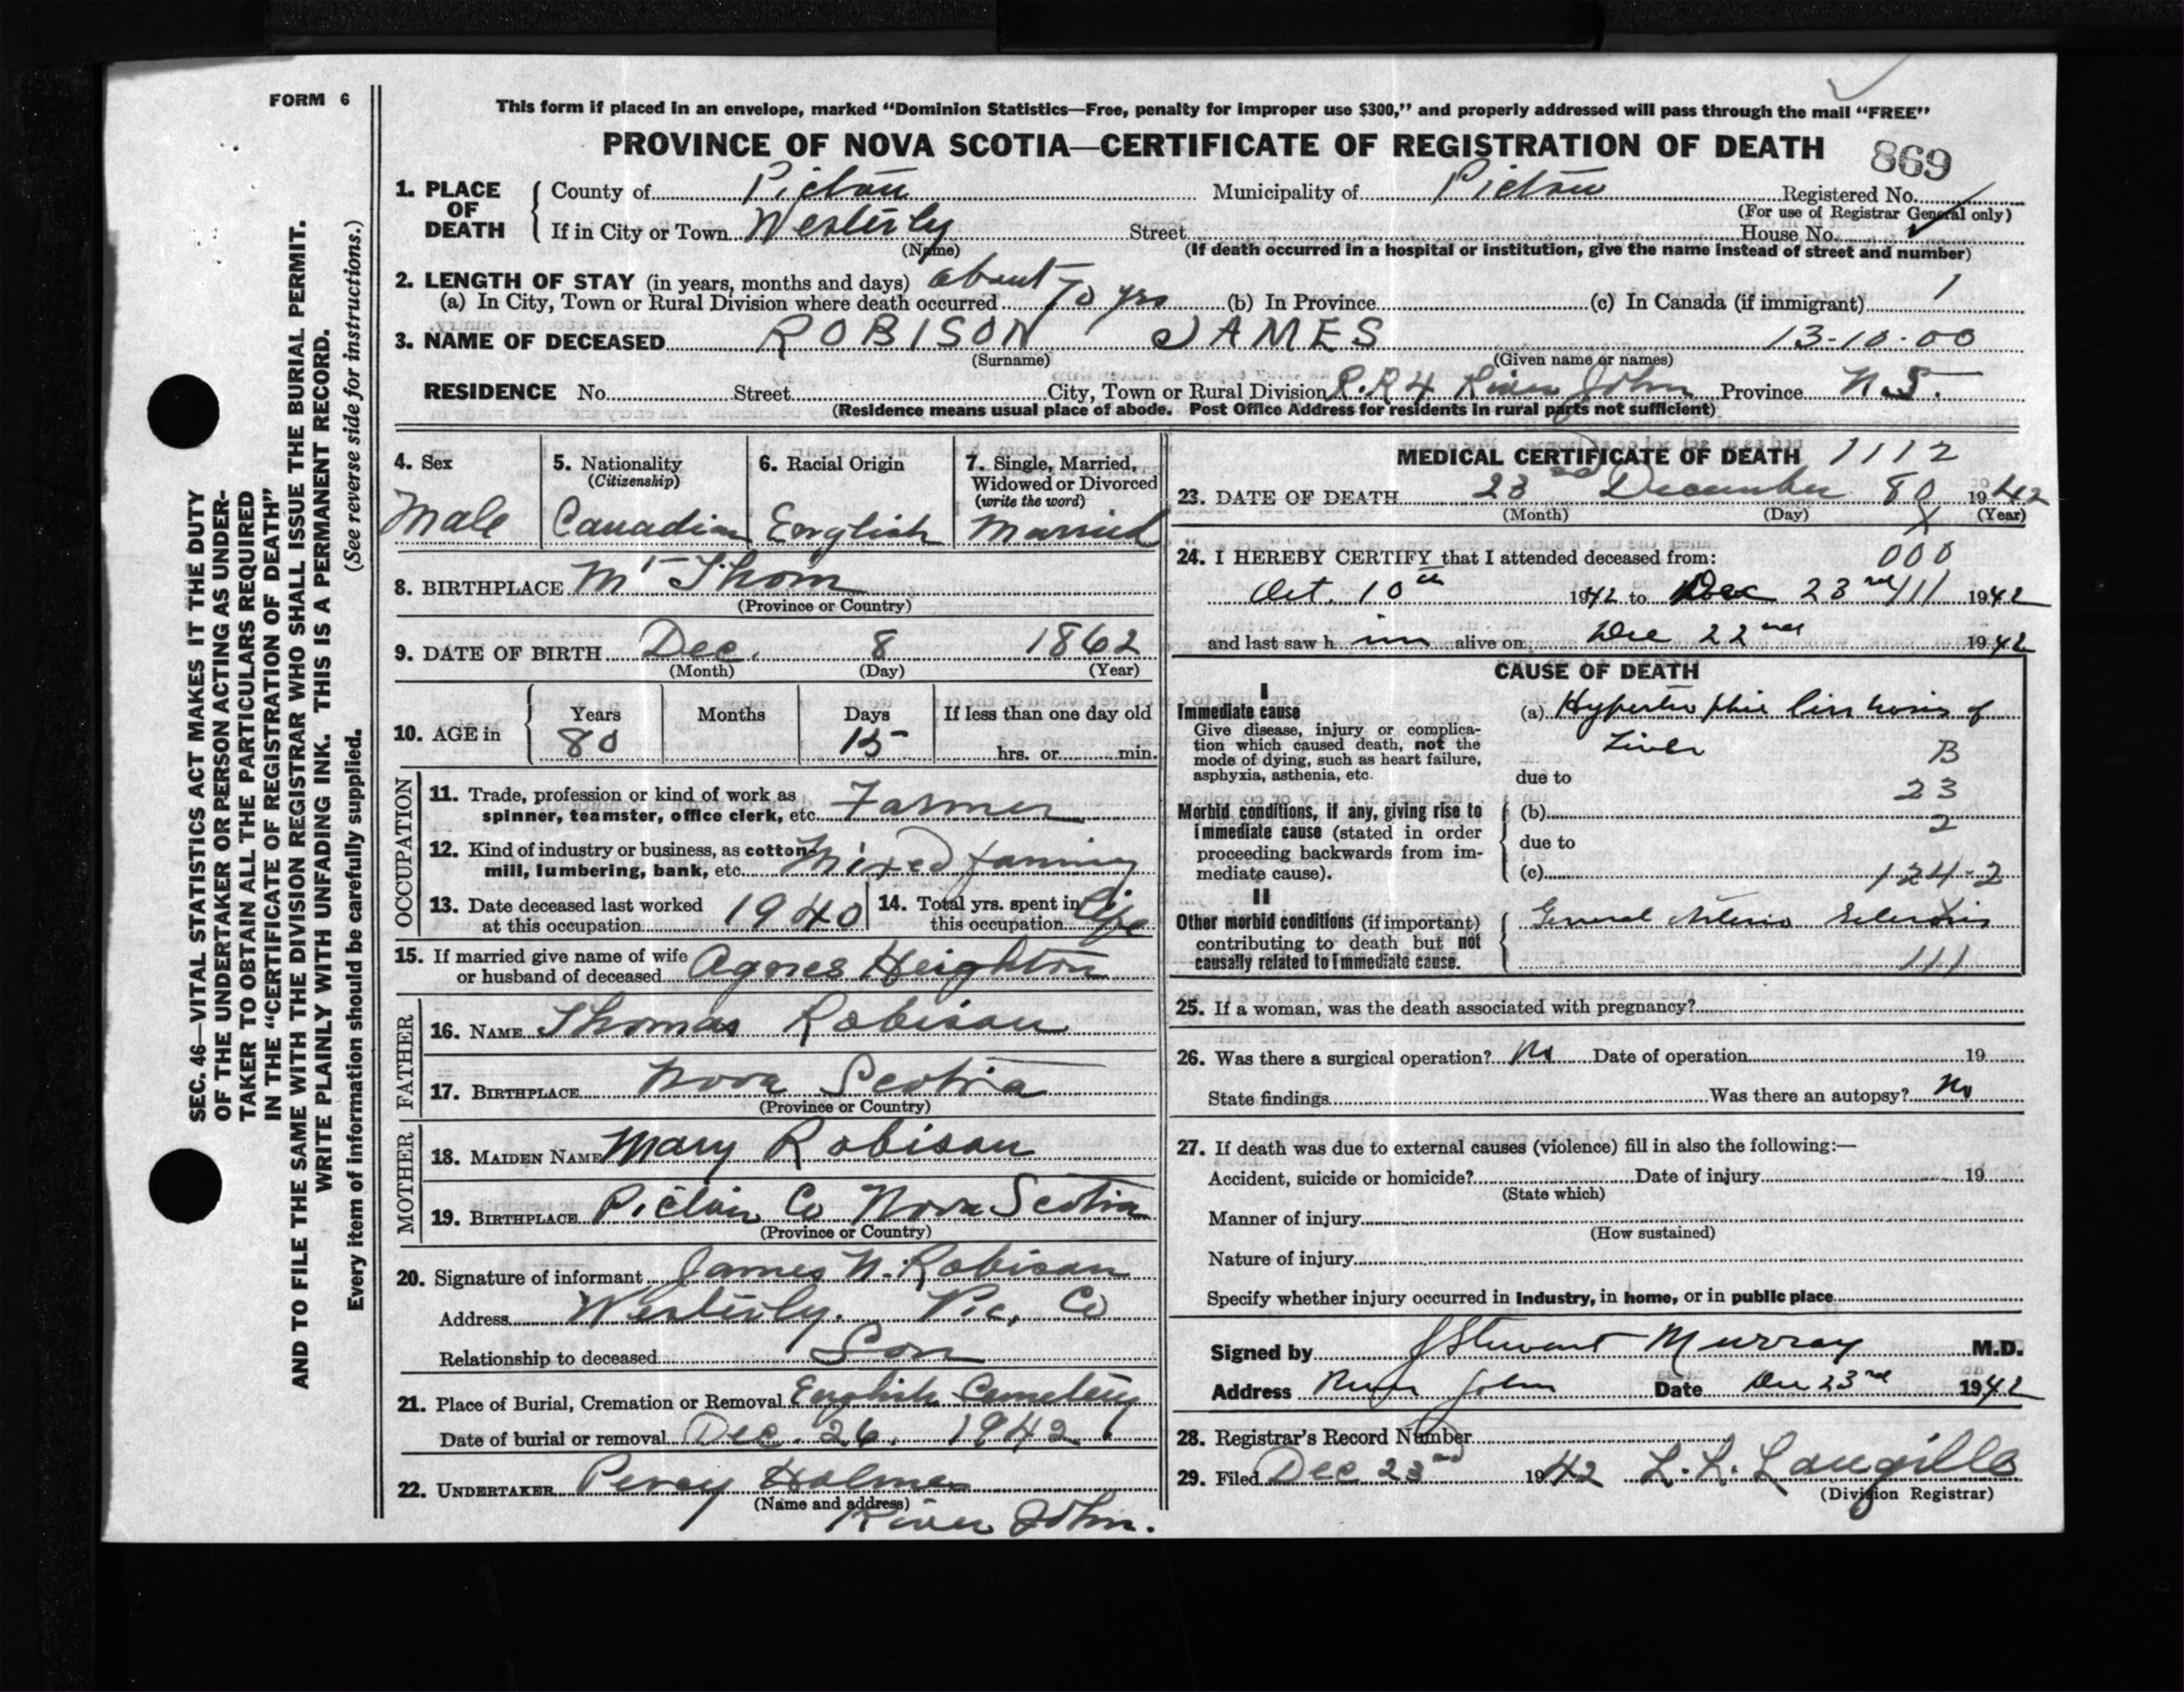 FORM 6
This form if placed in an envelope, marked “Dominion Statistics—Free, penalty for improper use $300,” and properly addressed will pass through the mail “FREE”
PROVINCE OF NOVA SCOTIA—CERTIFICATE OF REGISTRATION OF DEATH 869
1. PLACE OF DEATH
County of Pictou Municipality of Pictou Registered No.
(For use of Registrar General only)
If in City or Town Westerly Street House No.
(Name) (If death occurred in a hospital or institution, give the name instead of street and number)
2. LENGTH OF STAY (in years, months and days) about
(a) In City, Town or Rural Division where death occurred 70 yrs (b) In Province (c) In Canada (if immigrant) 1
3. NAME OF DECEASED ROBISON JAMES 13-10-00
(Surname) (Given name or names)
RESIDENCE No. Street City, Town or Rural Division R.R 4 River John Province N.S.
(Residence means usual place of abode. Post Office Address for residents in rural parts not sufficient)
4. Sex
Male
5. Nationality
(Citizenship)
Canadian
6. Racial Origin
English
7. Single, Married, Widowed or Divorced
(write the word)
Married
8. BIRTHPLACE Mt Thom
(Province or Country)
9. DATE OF BIRTH Dec. 8 1862
(Month) (Day) (Year)
10. AGE in Years Months Days If less than one day old
80 15 hrs. or min.
OCCUPATION
11. Trade, profession or kind of work as
spinner, teamster, office clerk, etc. Farmer
12. Kind of industry or business, as cotton-
mill, lumbering, bank, etc. Mixed farming
13. Date deceased last worked
at this occupation 1940
14. Total yrs. spent in
this occupation Life
15. If married give name of wife
or husband of deceased Agnes Heighton
FATHER
16. NAME Thomas Robison
17. BIRTHPLACE Nova Scotia
(Province or Country)
MOTHER
18. MAIDEN NAME Mary Robison
19. BIRTHPLACE Pictou Co Nova Scotia
(Province or Country)
20. Signature of informant James W. Robison
Address Westerly. Pic, Co
Relationship to deceased Son
21. Place of Burial, Cremation or Removal English Cemetery
Date of burial or removal Dec. 26. 1942
22. UNDERTAKER Percy Holmes
(Name and address)
River John.
MEDICAL CERTIFICATE OF DEATH 1112
23. DATE OF DEATH 23rd December 80 1942
(Month) (Day) (Year)
X
24. I HEREBY CERTIFY that I attended deceased from: 000
Oct. 10th 1942 to Dec 23rd 111 1942
and last saw h im alive on Dec 22nd 1942
CAUSE OF DEATH
I
Immediate cause
Give disease, injury or complica-
tion which caused death, not the
mode of dying, such as heart failure,
asphyxia, asthenia, etc.
(a) Hypertrophic Cirrhosis of
Liver
B
due to
23
Morbid conditions, if any, giving rise to
immediate cause (stated in order
proceeding backwards from im-
mediate cause).
(b)
2
due to
(c) 124-2
II
Other morbid conditions (if important)
contributing to death but not
causally related to immediate cause.
General Arterio Sclerosis
111
25. If a woman, was the death associated with pregnancy?
26. Was there a surgical operation? No Date of operation 19
State findings Was there an autopsy? No
27. If death was due to external causes (violence) fill in also the following:—
Accident, suicide or homicide? Date of injury 19
(State which)
Manner of injury
(How sustained)
Nature of injury
Specify whether injury occurred in industry, in home, or in public place
Signed by J Stewart Murray M.D.
Address River John Date Dec 23rd 1942
28. Registrar's Record Number
29. Filed Dec 23rd 1942 L. L. Langille
(Division Registrar)
SEC. 46—VITAL STATISTICS ACT MAKES IT THE DUTY
OF THE UNDERTAKER OR PERSON ACTING AS UNDER-
TAKER TO OBTAIN ALL THE PARTICULARS REQUIRED
IN THE “CERTIFICATE OF REGISTRATION OF DEATH”
AND TO FILE THE SAME WITH THE DIVISION REGISTRAR WHO SHALL ISSUE THE BURIAL PERMIT.
WRITE PLAINLY WITH UNFADING INK. THIS IS A PERMANENT RECORD.
Every item of information should be carefully supplied. (See reverse side for instructions.)